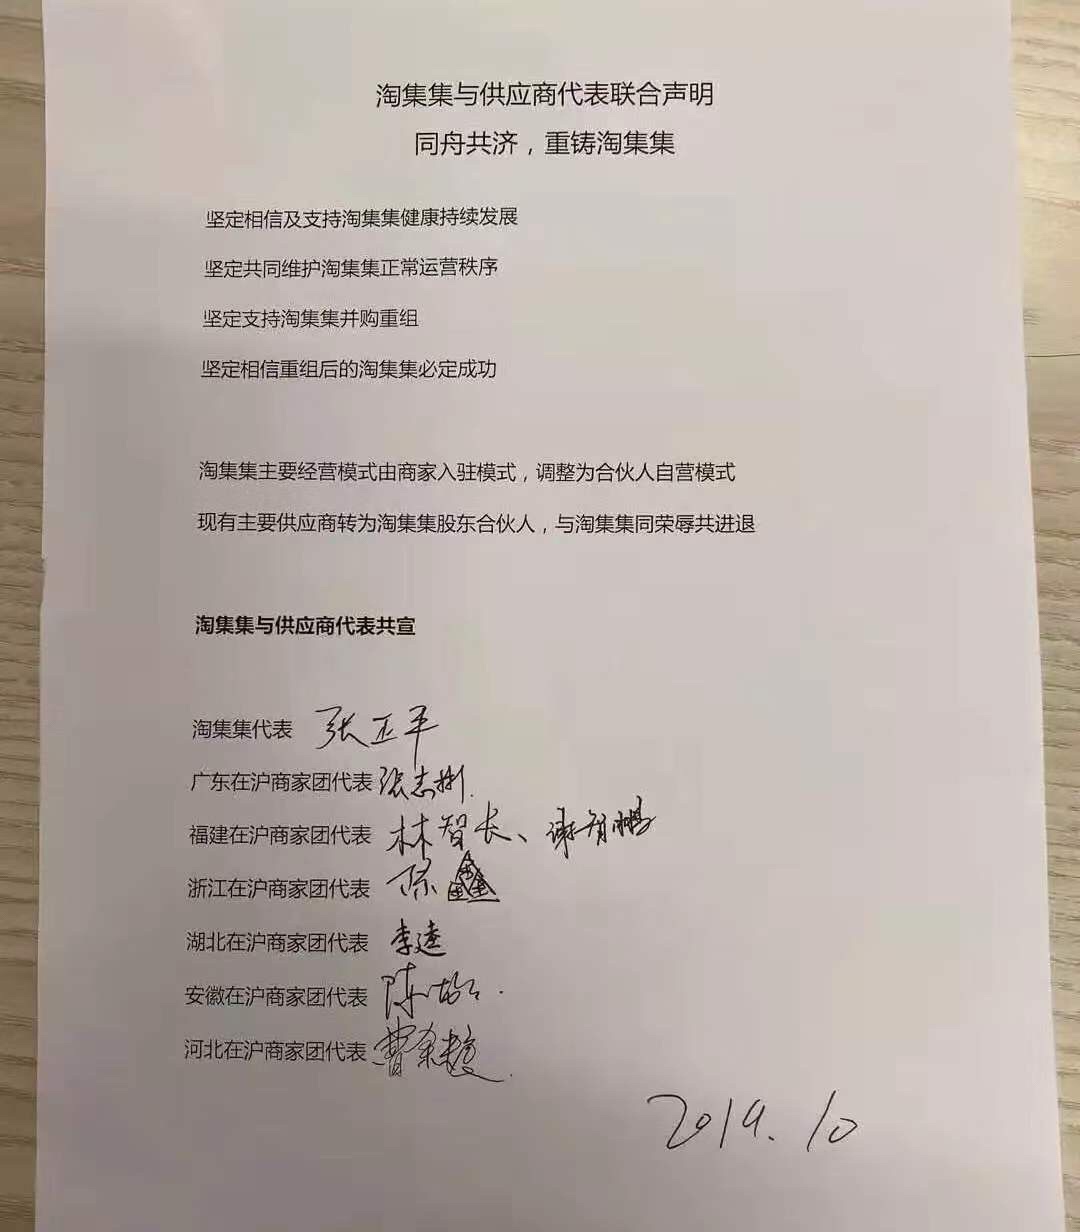 淘集集与供应商代表联合声明
同舟共济，重铸淘集集
坚定相信及支持淘集集健康持续发展
坚定共同维护淘集集正常运营秩序
坚定支持淘集集并购重组
坚定相信重组后的淘集集必定成功
淘集集主要经营模式由商家入驻模式，调整为合伙人自营模式
现有主要供应商转为淘集集股东合伙人，与淘集集同荣辱共进退
淘集集与供应商代表共宣
淘集集代表 张正平
广东在沪商家团代表 张志彬
福建在沪商家团代表 林智长、谢智鹏
浙江在沪商家团代表 鑫
湖北在沪商家团代表 李逵
安徽在沪商家团代表 陈
河北在沪商家团代表 曹
2019.10